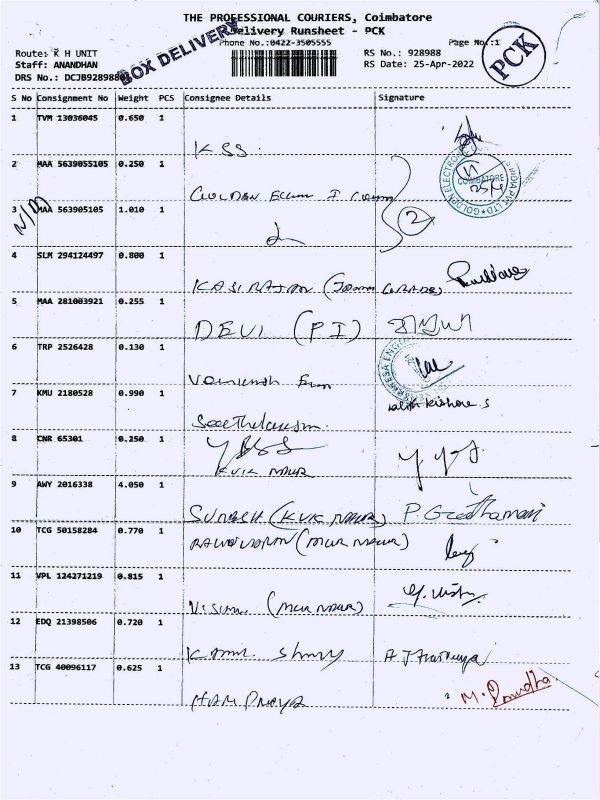 THE PROFESSIONAL COURIERS, Coimbatore
Delivery Runsheet - PCK
BOX DELIVERY
Phone No.:0422-3505555
Page No.:1
PCK
Route: K H UNIT
RS No.: 928988
Staff: ANANDHAN
RS Date: 25-Apr-2022
DRS No.: DCJB9289880
S No Consignment No Weight PCS Consignee Details Signature
1 TVM 13036045 0.650 1
KSS.
2 MAA 5639055105 0.250 1
GOLDEN
COIMBATORE
GOLDEN ELECTRONIC
INDIA PVT LTD
3 MAA 563905105 1.010 1
2
4 SLM 294124497 0.800 1
KASIRAJAN
5 MAA 281003921 0.255 1
DEVI (PI)
6 TRP 2526428 0.130 1
7 KMU 2180528 0.990 1
lalith Kishore S
8 CNR 65301 0.250 1
KVIK NAUR
9 AWY 2016338 4.050 1
SURESH (KVK NAUR) P. Geethamani
10 TCG 50158284 0.770 1
11 VPL 124271219 0.815 1
12 EDQ 21398506 0.720 1
13 TCG 40096117 0.625 1
HARI PRIYA
M.